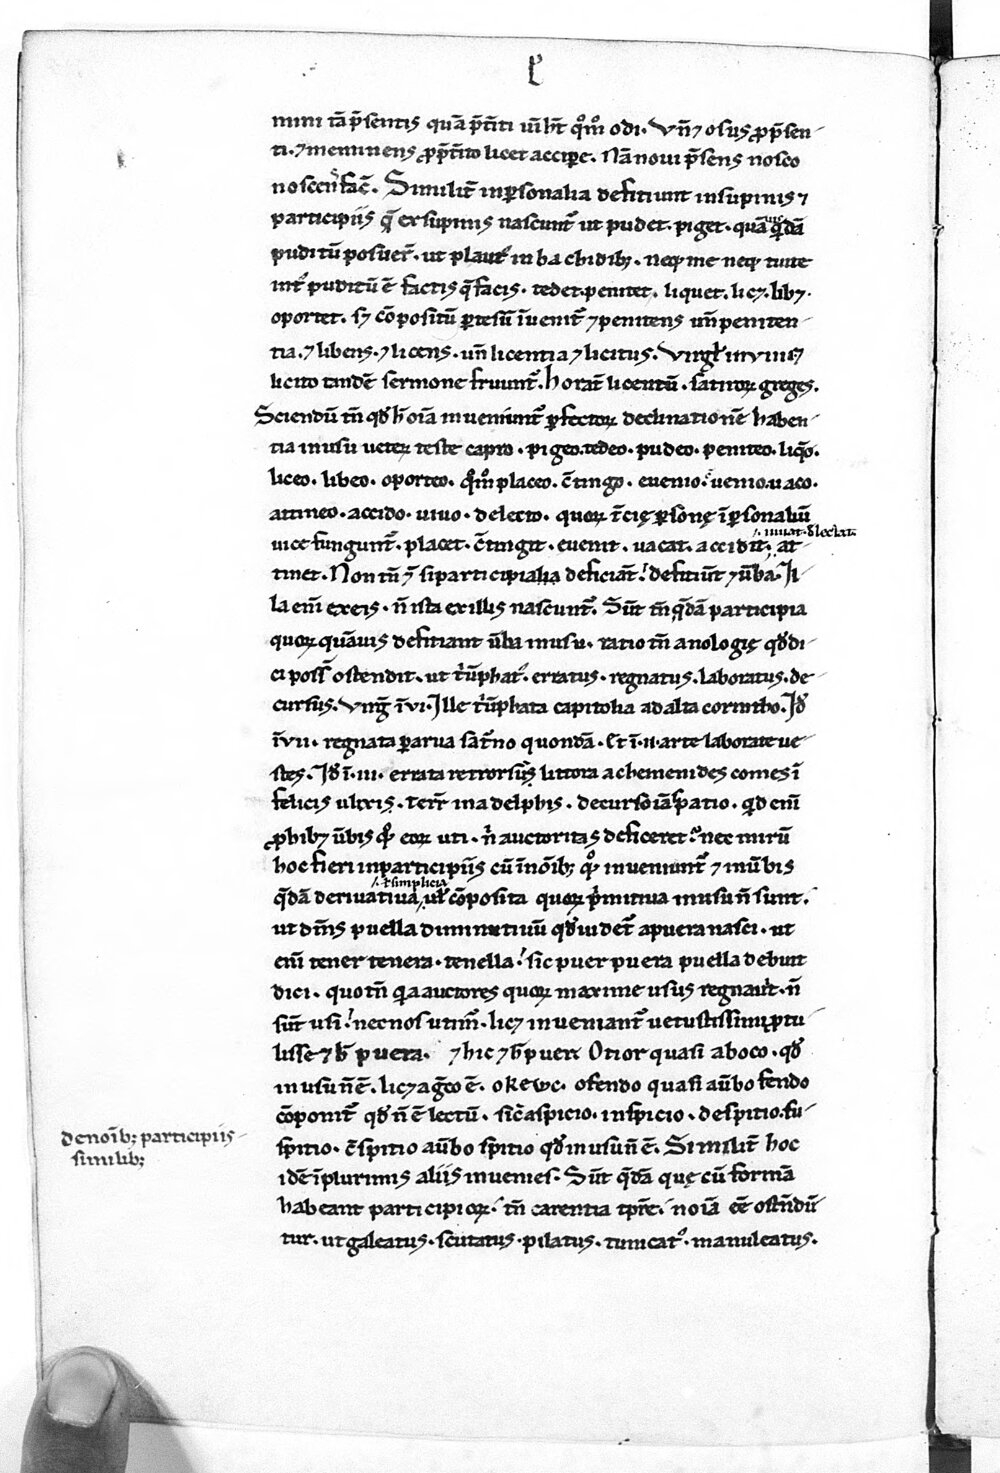 ł
mini tā p̄sentis quā p̄t̄iti uī hr̄t qm̊ odi. Vn̄ ⁊ osus ꝓ p̄sen-
ti. ⁊ meminens ꝓ p̄t̄ito licet accipe. Nā noui p̄sens nosco
noscen̄ facē. Similit̄ inꝑsonalia defitiunt in supinis ⁊
participiis q̄ ex supinis nascunt᷑ ut pudet. piget. quāuis q̄dā
puditū posuer̄. ut plaut᷑ in bachidib; neq; me neq; tuite
int᷑ puditū ē factis q̄ facis. tedet. penitet. liquet. lic⁊. lib⁊.
oportet. s⁊ cōpositū ꝑtesū īuenit᷑ ⁊ penitens un̄ peniten-
tia. ⁊ libens. ⁊ licens. un̄ licentia ⁊ licitus. Virgł in viii⁊
licito tandē sermone fruunt᷑. horat᷑ licentū. satirorꝫ greges.
Sciendū tn̄ qd̄ h̄ oīa inueniunt᷑ ꝑfectorꝫ declinationē haben-
tia in usu ueterꝫ teste capro. pigeo. tedeo. pudeo. peniteo. liq̊o.
liceo. libeo. oporteo. qm̊ placeo. c̄tingo. euenio. uenio. uaco.
attineo. accido. iuuo. delecto. quorꝫ t̄cię ꝑsonę īꝑsonaliū
uice fungunt᷑. placet. c̄tingit. euenit. uacat. accidit. at-
./. iuuat. dlectat.
tinet. Non tn̄ ⁊ si participialia deficiāt. defitiūt ⁊ ūba. Il-
la enī ex eis. n̄ ista ex illis nascunt᷑. Sūt tn̄ q̄dā participia
quorꝫ quāuis defitiant ūba in usu. ratio tn̄ anologię qd̄ di-
ci posst̄ ostendit. ut tūphat᷑. erratus. regnatus. laboratus. de-
cursus. Virḡ ī vi. Ille tūphata capitolia ad alta corintho. Id̄
ī vii. regnata parua sat̄no quondā. Et ī. ii. arte laborate ue-
stes. Id̄ ī. iii. errata retrorsus littora achemenides comes ī
felicis ulixis. Terr̄ in adelphis. decurso iā spatio. qd̄ enī
ꝓhib⁊ ūbis q̊ eorꝫ uti. n̄ auctoritas deficeret. nec mirū
hoc fieri in participiis cū ī noīb; q̊ inueniunt᷑ ⁊ in ūbis
./. t simplicia
q̄dā deriuatiua, uł cōposita quorꝫ p̄mitiua in usu n̄ sunt.
ut dn̄s puella diminutiuū qd̄ uidet᷑ a puera nasci. ut
enī tener tenera. tenella. sic puer puera puella debuit
dici. quo tn̄ q̄a auctores quorꝫ maxime usus regnauit. n̄
sūt usi. nec nos utim᷑. lic⁊ inueniant᷑ uetustissimi ꝓtu-
lisse ⁊ h̄ puera. ⁊ hic ⁊ h̄ puer. Otior quasi aboco. qd̄
in usu n̄ ē. lic⁊ ag̃co ē. okewc. ofendo quasi aūbo fendo
cōponit᷑ qd̄ n̄ ē lectū. sic̄ aspicio. inspicio. despitio. su-
spitio. c̄spitio aūbo spitio qd̄ in usu n̄ ē. Similit̄ hoc
idē ī plurimis aliis inuenies. Sūt q̄dā quę cū formā
habeant participiorꝫ. tn̄ carentia tp̄re. noīa eē ostn̄dū-
tur. ut galeatus. scutatus. pilatus. tunicat᷑. manuleatus.
de noīb; participiis
similib;